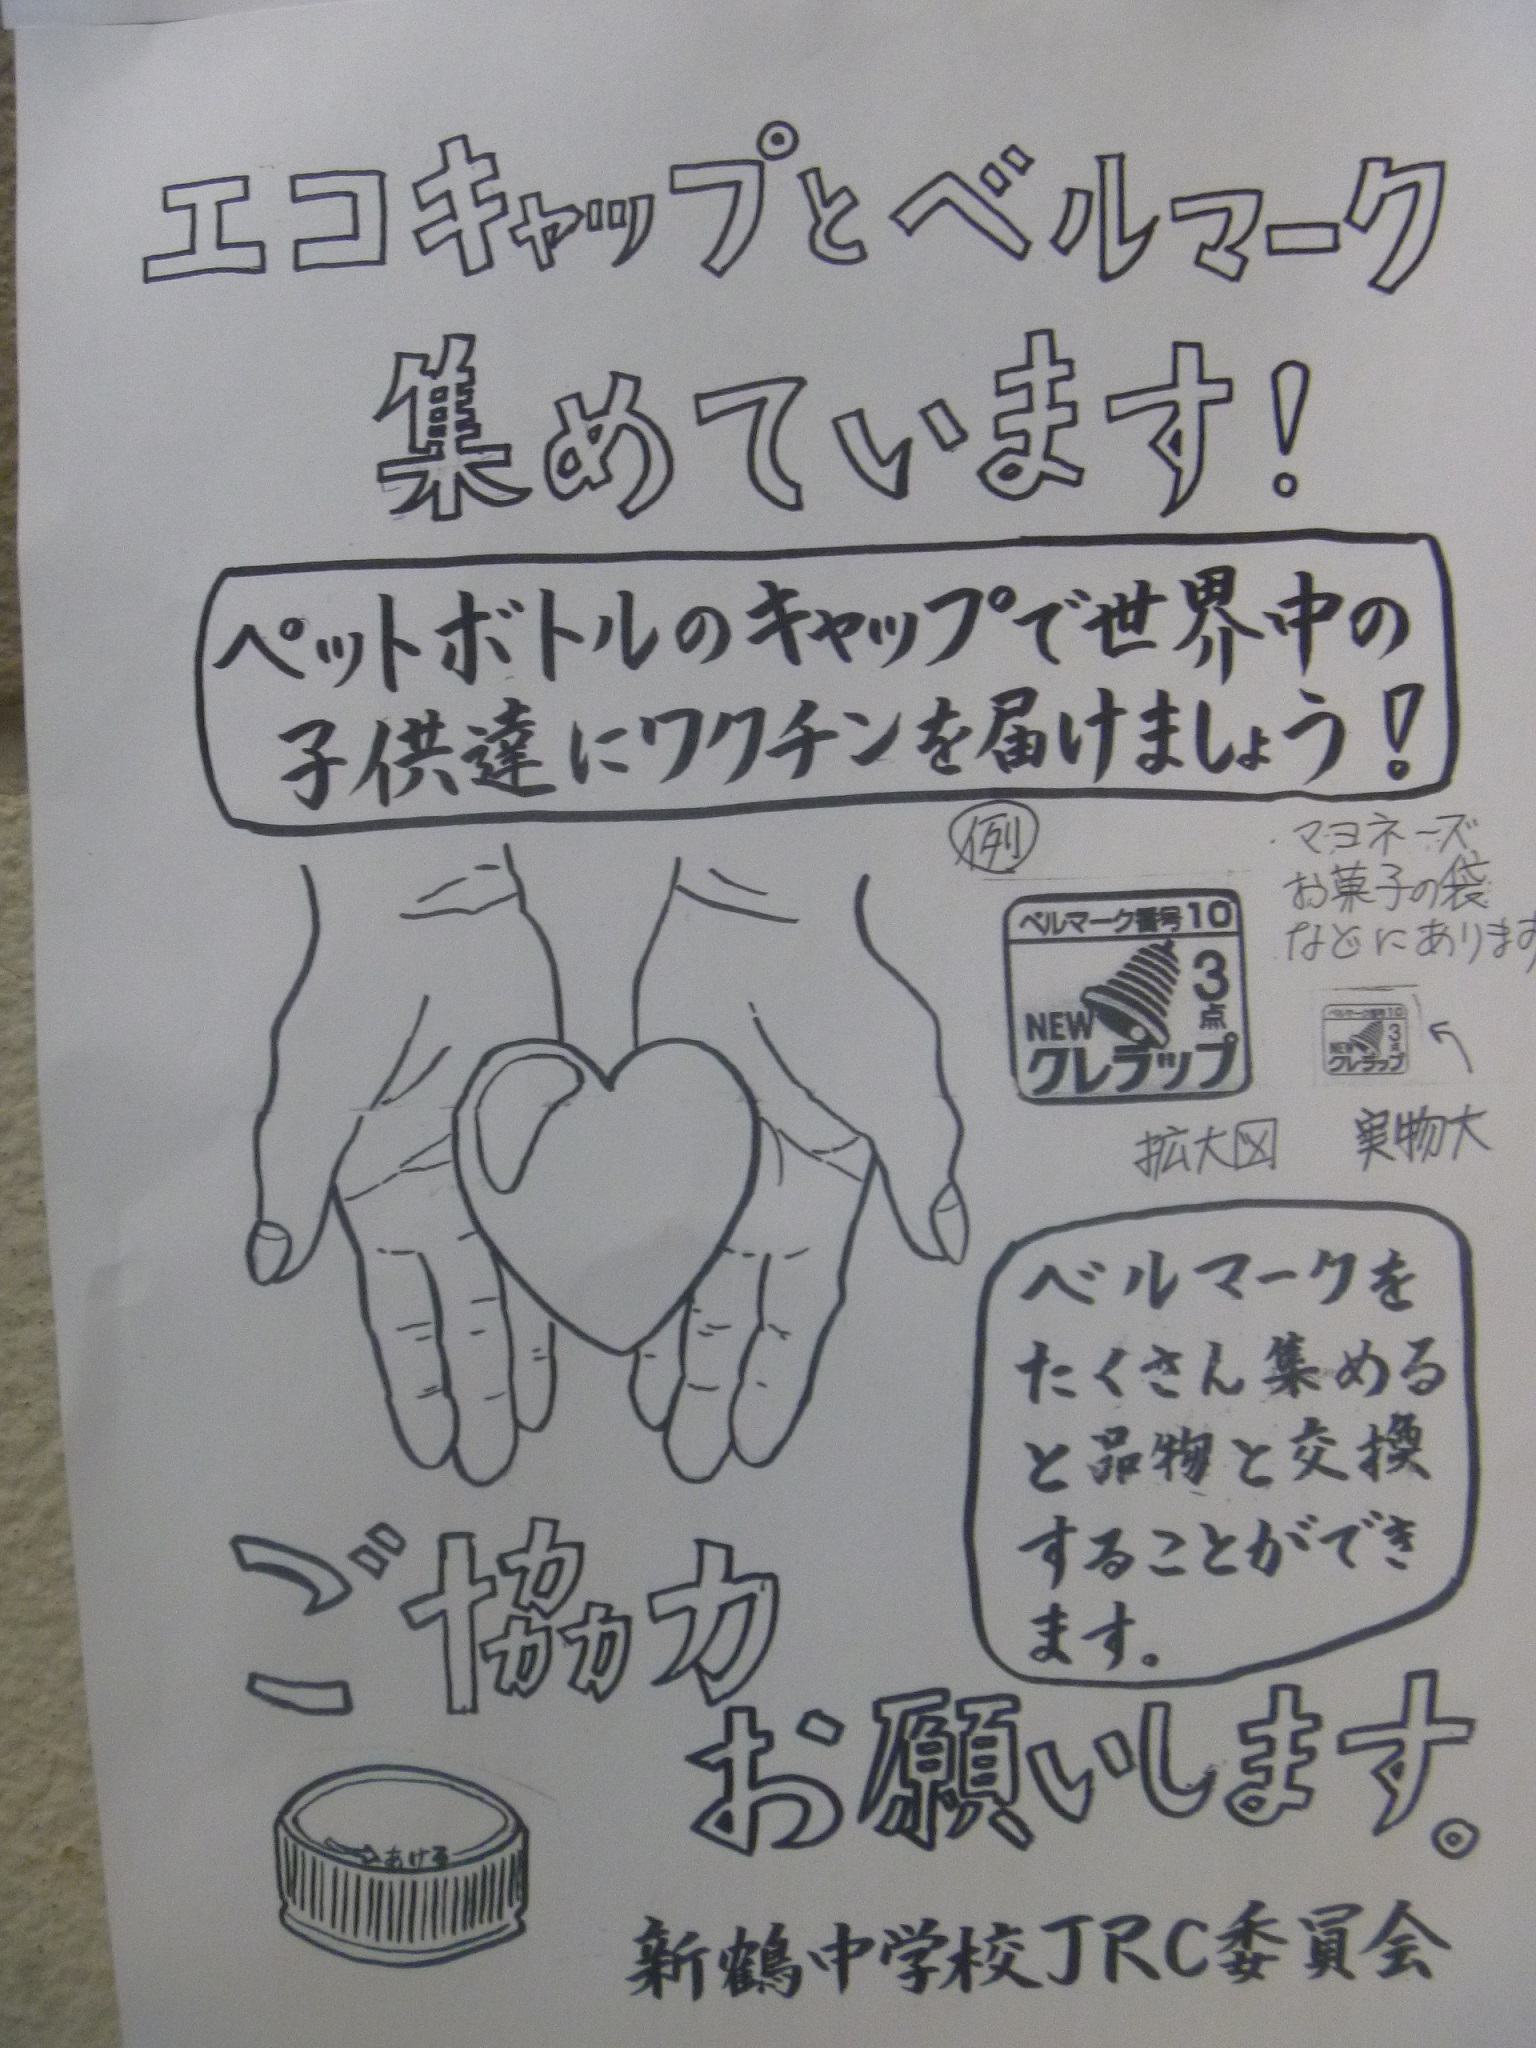 エコキャップとベルマーク
集めています！
ペットボトルのキャップで世界中の
子供達にワクチンを届けましょう！
例
マヨネーズ
お菓子の袋
などにあります
ベルマーク番号10
3
点
NEW
クレラップ
ベルマーク番号10
3
点
NEW
クレラップ
拡大図
実物大
ベルマークを
たくさん集める
と品物と交換
することができ
ます。
ご協力
お願いします。
あける
新鶴中学校JRC委員会